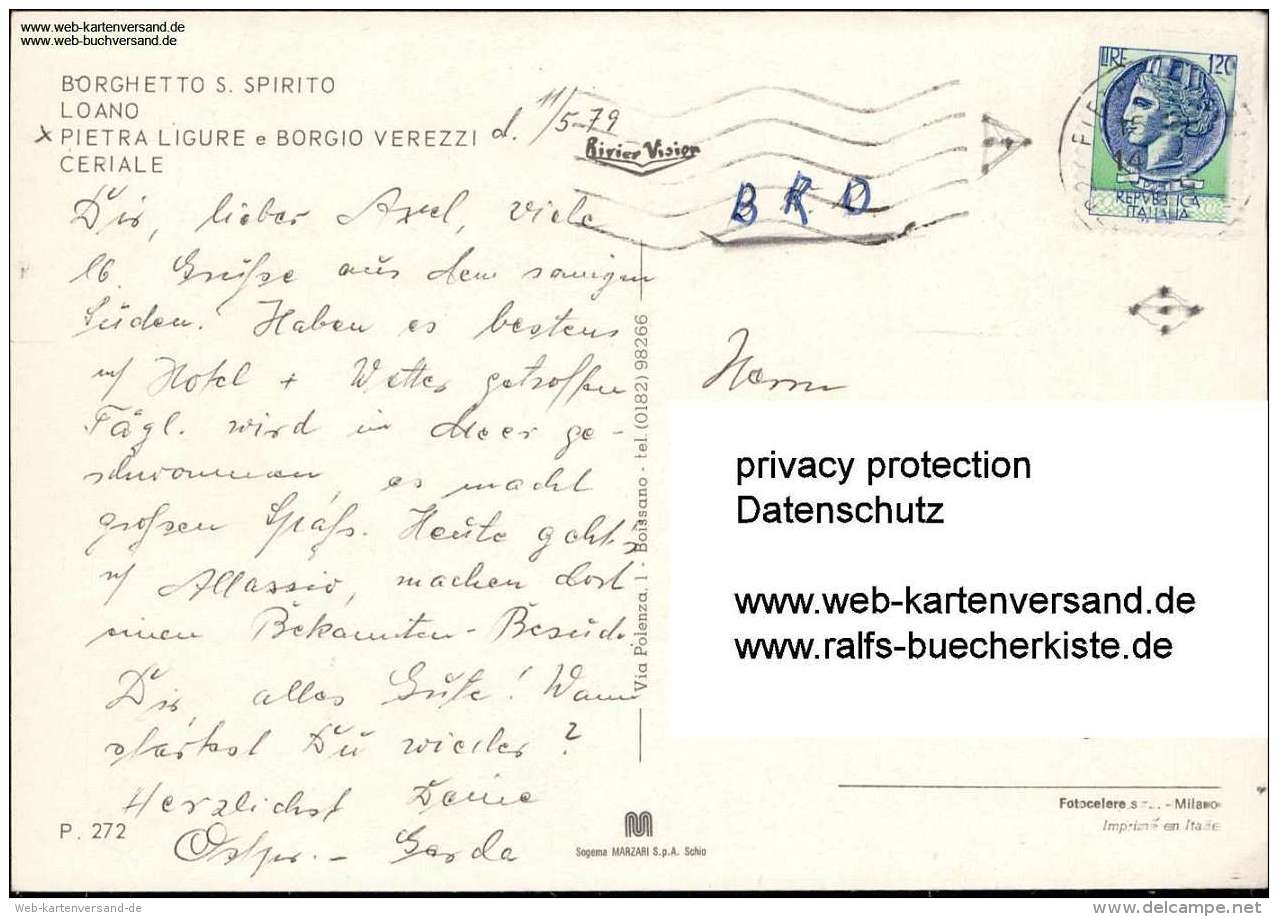 www.web-kartenversand.de
www.web-buchversand.de
BORGHETTO S. SPIRITO
LOANO
x PIETRA LIGURE e BORGIO VEREZZI d. 11/5-79
CERIALE
Dir, lieber Axel, viele
lb. Grüße aus dem sonnigen
Süden! Haben es bestens
m/ Hotel + Wetter getroffen
Tägl. wird im Meer ge-
schwommen, es macht
großen Spaß. Heute geht's
n/ Allassio, machen dort
einen Bekannten-Besuch.
Dir alles Gute! Wann
startest Du wieder?
Herzlichst Deine
Gerda
P. 272
Via Polenza, 1 - Boissano - tel. (0182) 98266
Sogema MARZARI S.p.A. Schio
Rivier Vision
BRD
LIRE 120
14
REPVBBLICA
ITALIANA
Herrn
privacy protection
Datenschutz
www.web-kartenversand.de
www.ralfs-buecherkiste.de
Fotocelere - Milano
Imprimé en Italie
Web-kartenversand-de
www.delcampe.net